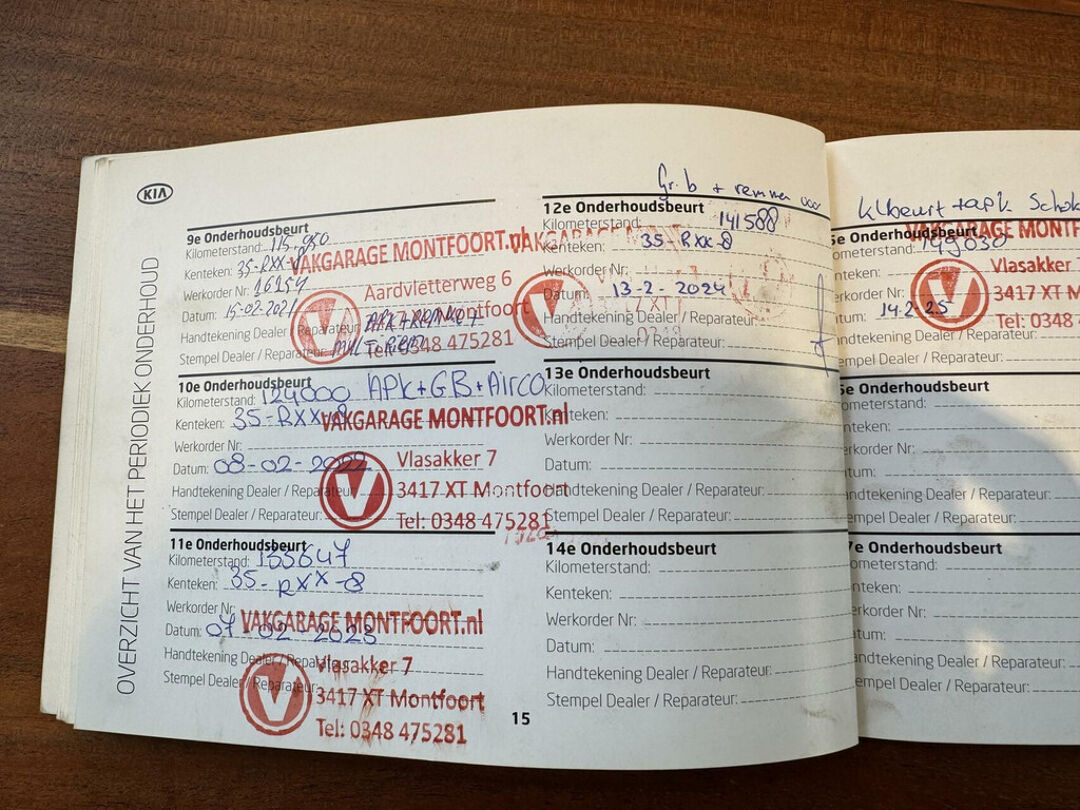 KIA
OVERZICHT VAN HET PERIODIEK ONDERHOUD
9e Onderhoudsbeurt
Kilometerstand: 115.950
Kenteken: 35-RXX-8
Werkorder Nr: 16154
Datum: 15-02-2021
Handtekening Dealer / Reparateur:
Stempel Dealer / Reparateur:
VAKGARAGE MONTFOORT.nl
Aardvletterweg 6
Montfoort
Tel: 0348 475281
10e Onderhoudsbeurt
Kilometerstand: 124000 APK+GB+Airco
Kenteken: 35-RXX-8
Werkorder Nr:
Datum: 08-02-2022
Handtekening Dealer / Reparateur:
Stempel Dealer / Reparateur:
VAKGARAGE MONTFOORT.nl
Vlasakker 7
3417 XT Montfoort
Tel: 0348 475281
11e Onderhoudsbeurt
Kilometerstand: 133647
Kenteken: 35-RXX-8
Werkorder Nr:
Datum: 07-02-2023
Handtekening Dealer / Reparateur:
Stempel Dealer / Reparateur:
VAKGARAGE MONTFOORT.nl
Vlasakker 7
3417 XT Montfoort
Tel: 0348 475281
Gr.b + remmen
12e Onderhoudsbeurt
Kilometerstand: 141588
Kenteken: 35-RXX-8
Werkorder Nr:
Datum: 13-2-2024
Handtekening Dealer / Reparateur:
Stempel Dealer / Reparateur:
VAKGARAGE
XT
0348
13e Onderhoudsbeurt
Kilometerstand:
Kenteken:
Werkorder Nr:
Datum:
Handtekening Dealer / Reparateur:
Stempel Dealer / Reparateur:
14e Onderhoudsbeurt
Kilometerstand:
Kenteken:
Werkorder Nr:
Datum:
Handtekening Dealer / Reparateur:
Stempel Dealer / Reparateur:
15
Klbeurt + apk Schok
5e Onderhoudsbeurt
ometerstand: 149030
nteken:
erkorder Nr:
tum: 14-2-25
andtekening Dealer / Reparateur:
empel Dealer / Reparateur:
GARAGE MONTF
Vlasakker
3417 XT M
Tel: 0348
6e Onderhoudsbeurt
ometerstand:
nteken:
erkorder Nr:
tum:
andtekening Dealer / Reparateur:
empel Dealer / Reparateur:
7e Onderhoudsbeurt
ometerstand:
nteken:
erkorder Nr:
atum:
andtekening Dealer / Reparateur:
empel Dealer / Reparateur: